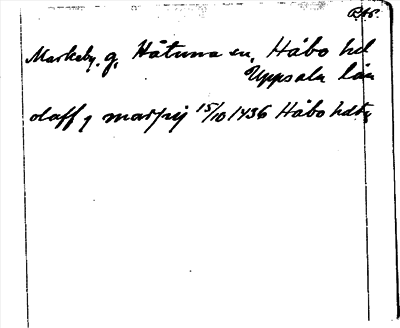 RAp.
Markeby. g. Håtuna sn, Håbo hd
Uppsala län
olaff j marssij 15/10 1436 Håbo hdtg